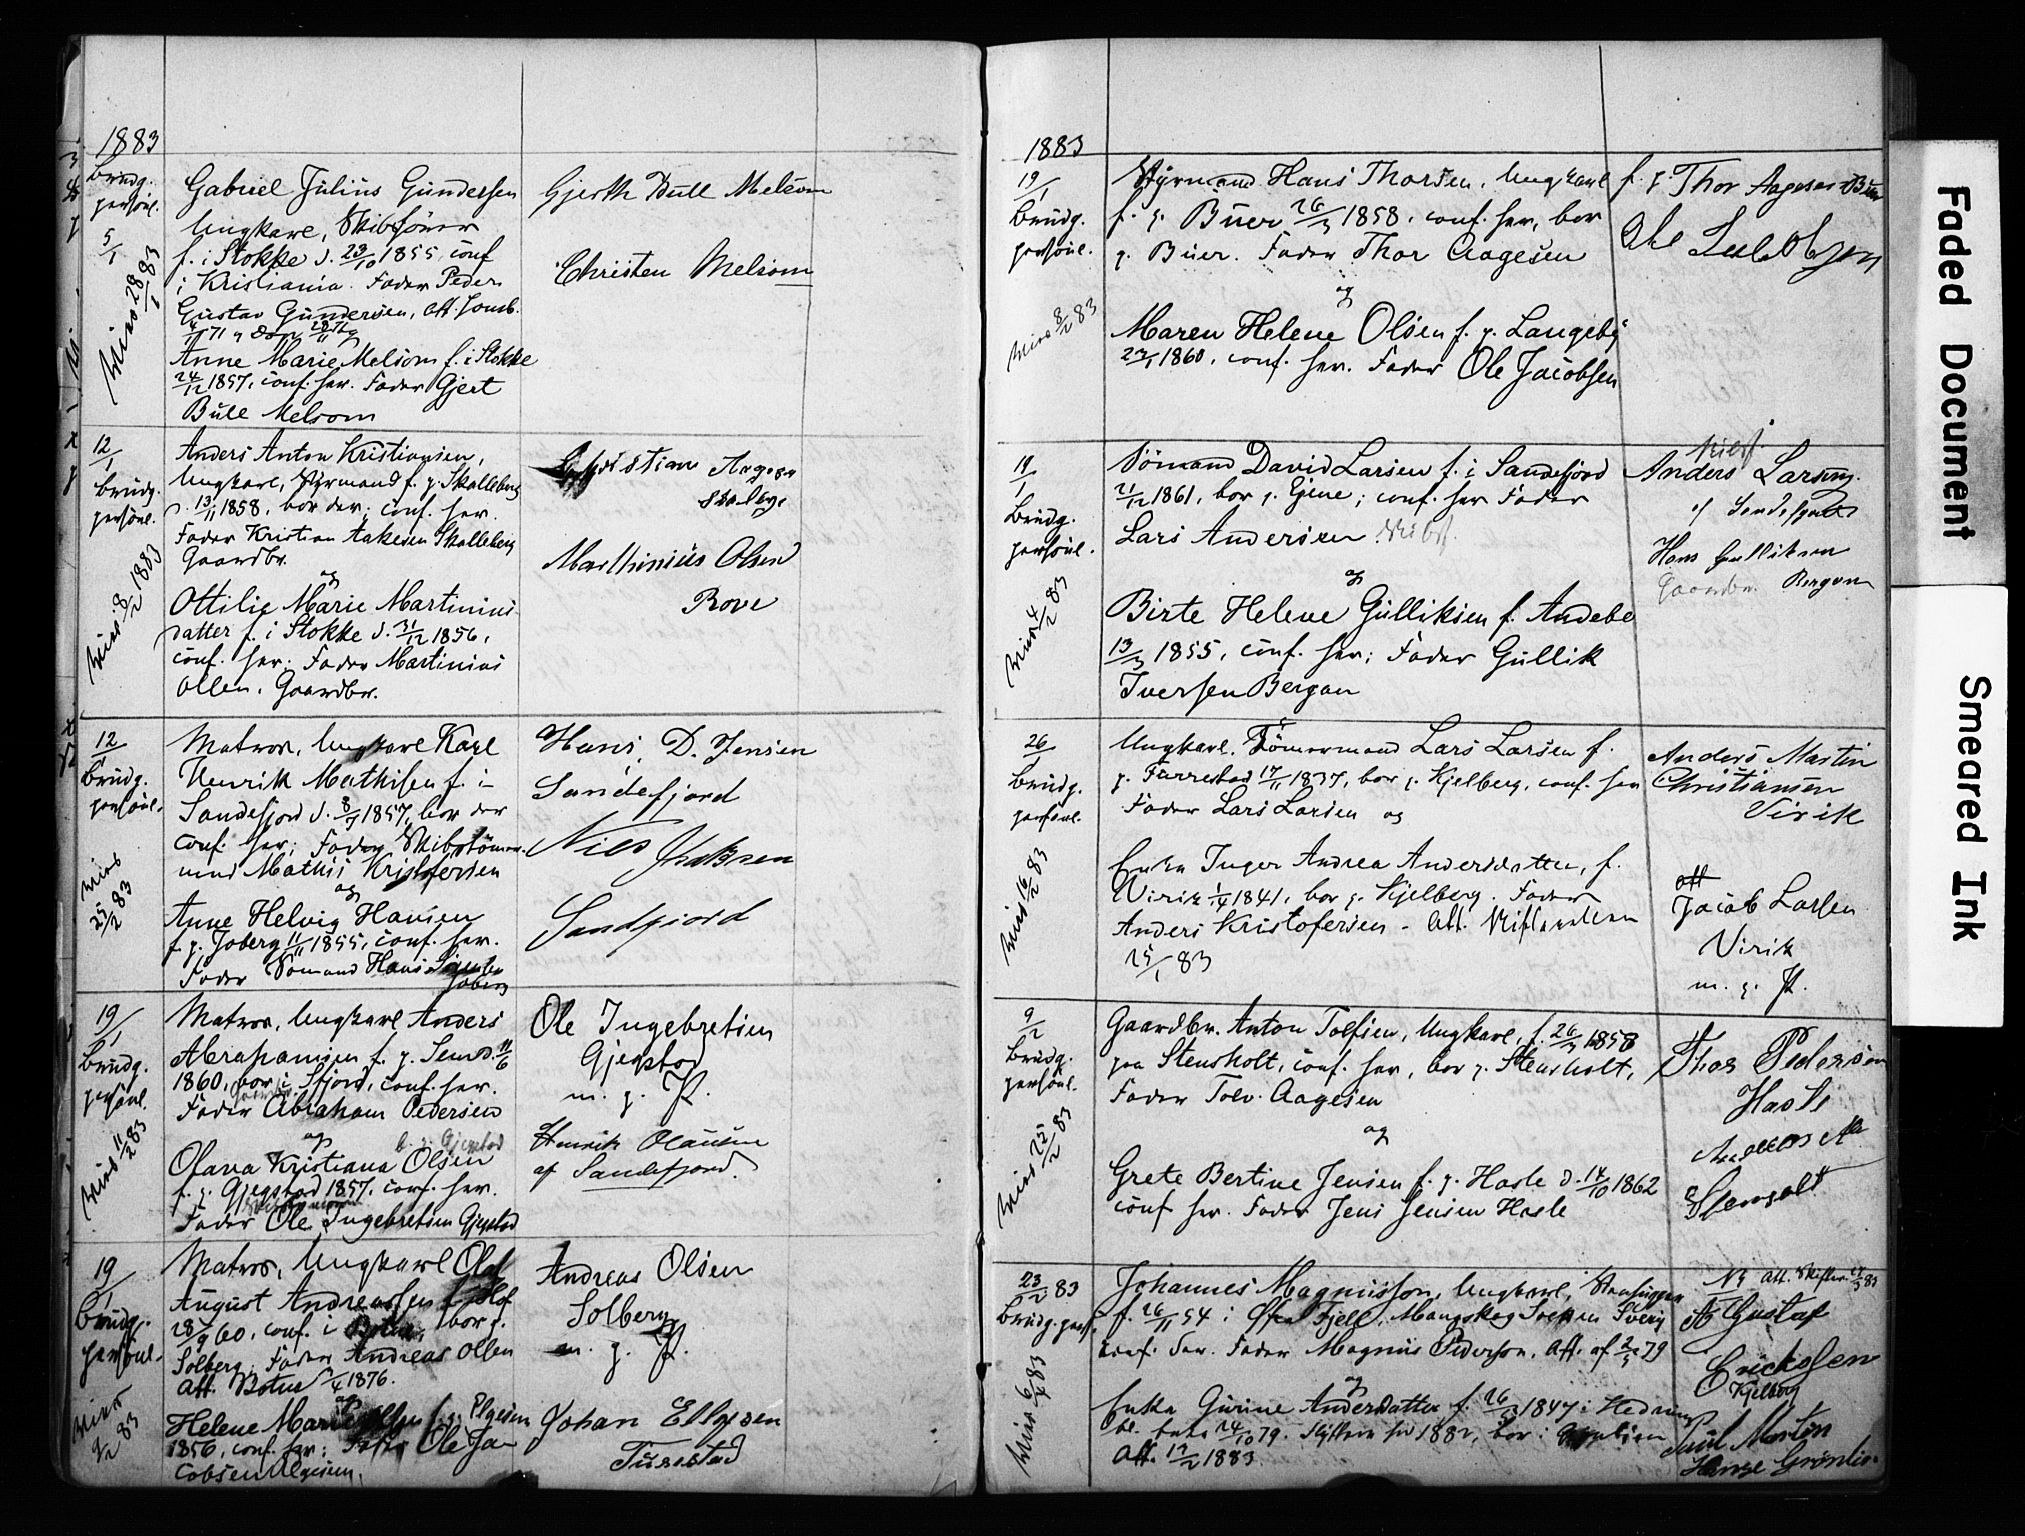 1883
Brudg.
persönl.
5/1
Viet 28/1 83
Gabriel Julius Gundersen
Ungkarl, Skibstömr
f. i Stokke d. 23/10 1855, conf
i Kristiania. Fader Peder
Gustav Gundersen, Att. Jomb.
4/1 71
Anne Marie Melsom f. i Stokke
24/12 1857, conf. her. Fader Gjert
Bull Melsom
Gjerth Bull Melsom
Christen Melsom
12/1
Brudg.
persönl.
8/2 1883
Anders Anton Kristiansen,
Ungkarl, Styrmand f. p. Skalleberg
d. 13/11 1858, bor der, conf. her.
Fader Kristian Aakesen Skalleberg
Gaardbr.
og
Ottilie Marie Martinius
datter f. i Stokke d. 31/12 1856,
conf. her; Fader Martinius
Olsen, Gaardbr.
Christian Aagesen
Marthinius Olsen
Rove
12/1
Brudg.
persönl.
25/2 83
Matros, Ungkarl Karl
Henrik Mathisen f. i
Sandefjord d. 8/7 1857, bor der
conf. her; Fader Skibstömer-
mand Mathis Kristofersen
og
Anne Helvig Hansen
f. p. Joberg 11/11 1855, conf. her.
Fader Sömand Hans
Joberg
Hans, D. Jensen
Sandefjord
Nils Isaksen
Sandfjord
19/1
Brudg.
persönl.
11/2 83
Matros, Ungkarl, Anders
Abrahamsen f. p. Semd. 11/6
1860, bor i Sfjord, conf. her.
Fader Abraham Pedersen
og
b. p. Gjegstad
Olava Kristiana Olsen
f. p. Gjegstad 1857, conf. her.
Fader Ole Ingebretsen Gjegstad
Ole Ingebretsen
Gjegstad
m. p. P.
Henrik Olausen
af Sandefjord.
19/1
Brudg.
persönl.
9/2 83
Matros, Ungkarl Olaf
August Andreassen f. Hof
28/9 60, conf. i Botne, bor p.
Solberg, Fader Andreas Olsen
Att. Botne 5/4 1876.
og
Helene Marie Olsen f. p. Elgesem
1856, conf. her; Fader Ole Ja-
cobsen Elgesem.
Andreas Olsen
Solberg
m. p. P.
Johan Ellefsen
Furestad
1883
19/1
Brudg.
persönl.
8/2 83
Styrmand Hans Thorsen, Ungkarl
f. p. Buer 26/3 1858, conf. her, bor
p. Buer. Fader Thor Aagesen
og
Maren Helene Olsen f. p. Langeby
27/1 1860, conf. her. Fader Ole Jacobsen
f. p. Thor Aagesen Buer
19/1
Brudg.
persönl.
4/2 83
Sömand David Larsen f. i Sandefjord
21/12 1861, bor p. Gjene; conf. her Fader
Lars Andersen
og
Birte Helene Gulliksen f. Andebo
13/3 1855, conf. her; Fader Gullik
Iversen Bergan
Anders Larsen
af Sandefjord
Hans Gulliksen
Gaardbr. Bergan
26/1
Brudg.
persönl.
16/2 83
Ungkarl, Tömermand Lars Larsen f.
p. Farrestad 17/11 1837, bor p. Kjelberg, conf. her
Fader Lars Larsen og
Enke Inger Andrea Andersdatter, f.
Virik 1/4 1841, bor p. Kjelberg. Fader
Anders Kristofersen - Att. Skifteretten
25/1 83
Anders Martin
Christiansen
Virik
Jacob Larsen
Virik
m. p. P.
9/2
Brudg.
persönl.
25/2 83
Gaardbr. Anton Tolfsen, Ungkarl, f. 26/3 1858
paa Stensholt, conf. her, bor p. Stensholt,
Fader Tolv. Aagesen
og
Grete Bertine Jensen f. p. Hasle d. 14/10 1862
conf her. Fader Jens Jensen Hasle
Thor Pedersen
Hasle
23/2 83
Brudg. pers.
6/4 83
Johannes Magnusson, Ungkarl, Stenhugger
f. 26/11 54 i Fjell, Mangskog Sogn Sverig
conf. der. Fader Magnus Pederson, Att. af 2/5 79
og
Enke Gurine Andersdatter f. 26/3 1847 i Hedrum
bl. enke 24/10 79. 1882, bor i
Att. 17/2 1883.
Att. Skifteret 27/3 83
Gustaf
Erickssen
Kjelberg
Morten
Hanse Grönlie
Faded Document
Smeared Ink